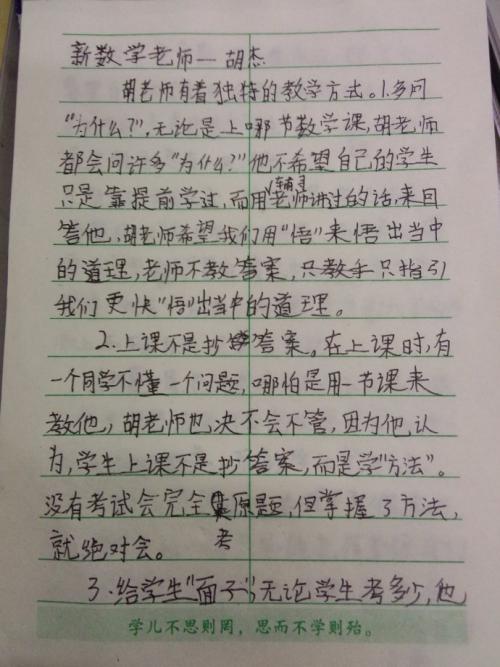 新数学老师——胡杰
胡老师有着独特的教学方式。1.多问
“为什么?”,无论是上哪节数学课,胡老师
都会问许多“为什么?”他不希望自己的学生
只是靠提前学过,而用辅导老师讲过的话,来回
答他,胡老师希望我们用“悟”来悟出当中
的道理,老师不教答案,只教手只指引
我们更快“悟”出当中的道理。
2.上课不是抄答案。在上课时,有
一个同学不懂一个问题,哪怕是用一节课来
教他,胡老师也决不会不管,因为他认
为,学生上课不是抄答案,而是学“方法”。
没有考试会完全考原题,但掌握了方法,
就绝对会。
3.给学生“面子”,无论学生考多少,他
学儿不思则罔,思而不学则殆。